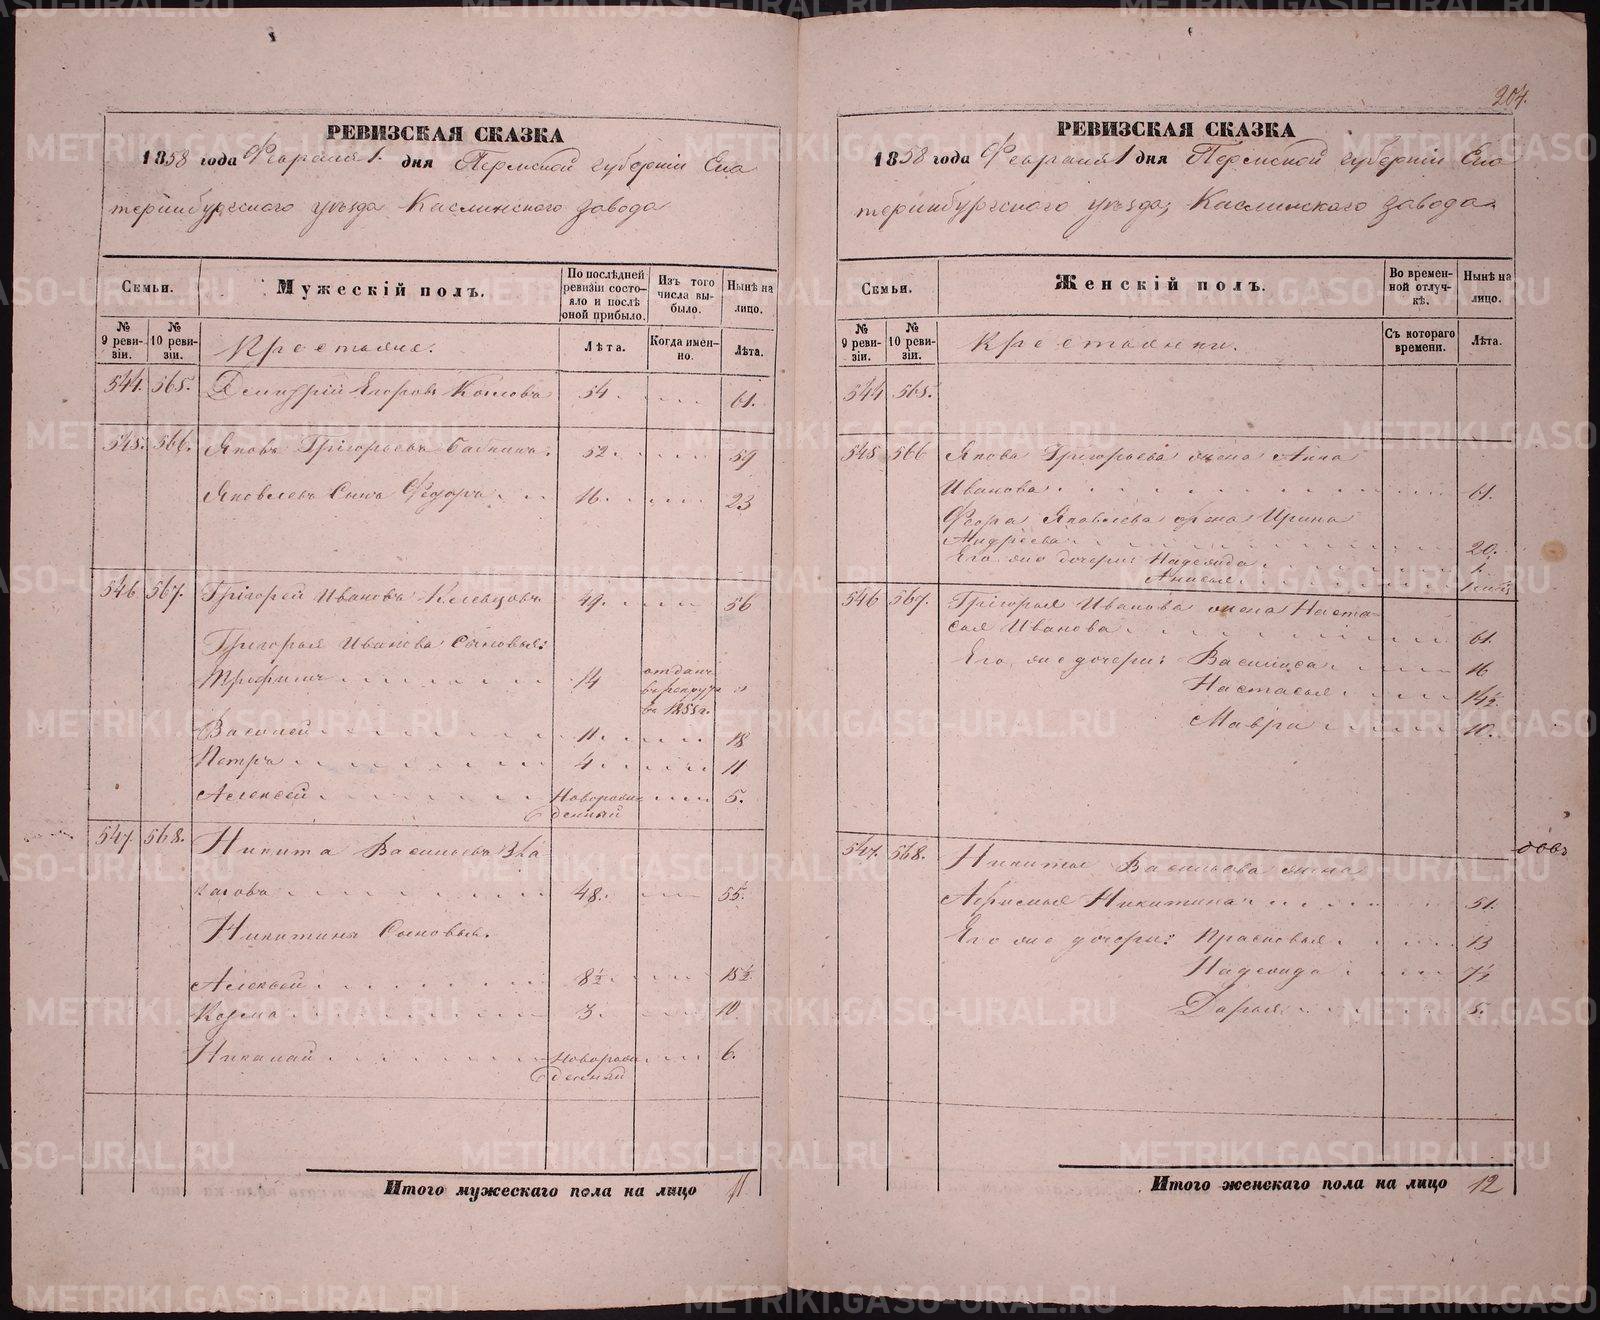 204.
РЕВИЗСКАЯ СКАЗКА
1858 года Февраля 1. дня Пермской губерніи Ека
теринбургскаго уѣзда Каслинскаго завода
Семьи.
Мужескій полъ.
По послѣдней ревизіи состояло и послѣ оной прибыло.
Изъ того числа выбыло.
Нынѣ на лицо.
№ 9 ревизіи.
№ 10 ревизіи.
Крестьяне.
Лѣта.
Когда именно.
Лѣта.
544. 565. Димитрій Егоровъ 54 61.
545. 566. Яковъ Григорьевъ 52 59
Яковлевъ Сынъ Федоръ 16 23
546 567. Григорей Ивановъ 49 56
Григорья Иванова Сыновья:
Трифилъ 14 отданъ въ рекруты въ 1855 г.
Василей 11 18
Петръ 4 11
Алексей Новорожденный 5.
547. 568. Никита Васильевъ
48. 55.
Никитины Сыновья.
Алексей 8½ 15½
Козма 3 10
Николай Новорожденный 6.
Итого мужескаго пола на лицо 11
РЕВИЗСКАЯ СКАЗКА
1858 года Февраля 1 дня Пермской губерніи Ека
теринбургскаго уѣзда, Каслинскаго завода
Семьи.
Женскій полъ.
Во временной отлучкѣ.
Нынѣ на лицо.
№ 9 ревизіи.
№ 10 ревизіи.
Крестьянки.
Съ котораго времени.
Лѣта.
544 565.
545 566 Якова Григорьева жена Анна
Иванова 61.
Федора Яковлева жена Ирина
Андреева 20.
Его же дочери: Надежда 1.
Анисья
546 567. Григорья Иванова жена Наста-
сья Иванова 61.
Его же дочери: Васиlиса 16
Настасья 14½
Мавра 10.
547. 568. Никиты Васильева жена
Афимья Никитина 51.
Его же дочери: Прасковья 13
Надежда 7½
Дарья 5.
Итого женскаго пола на лицо 12
METRIKI.GASO-URAL.RU